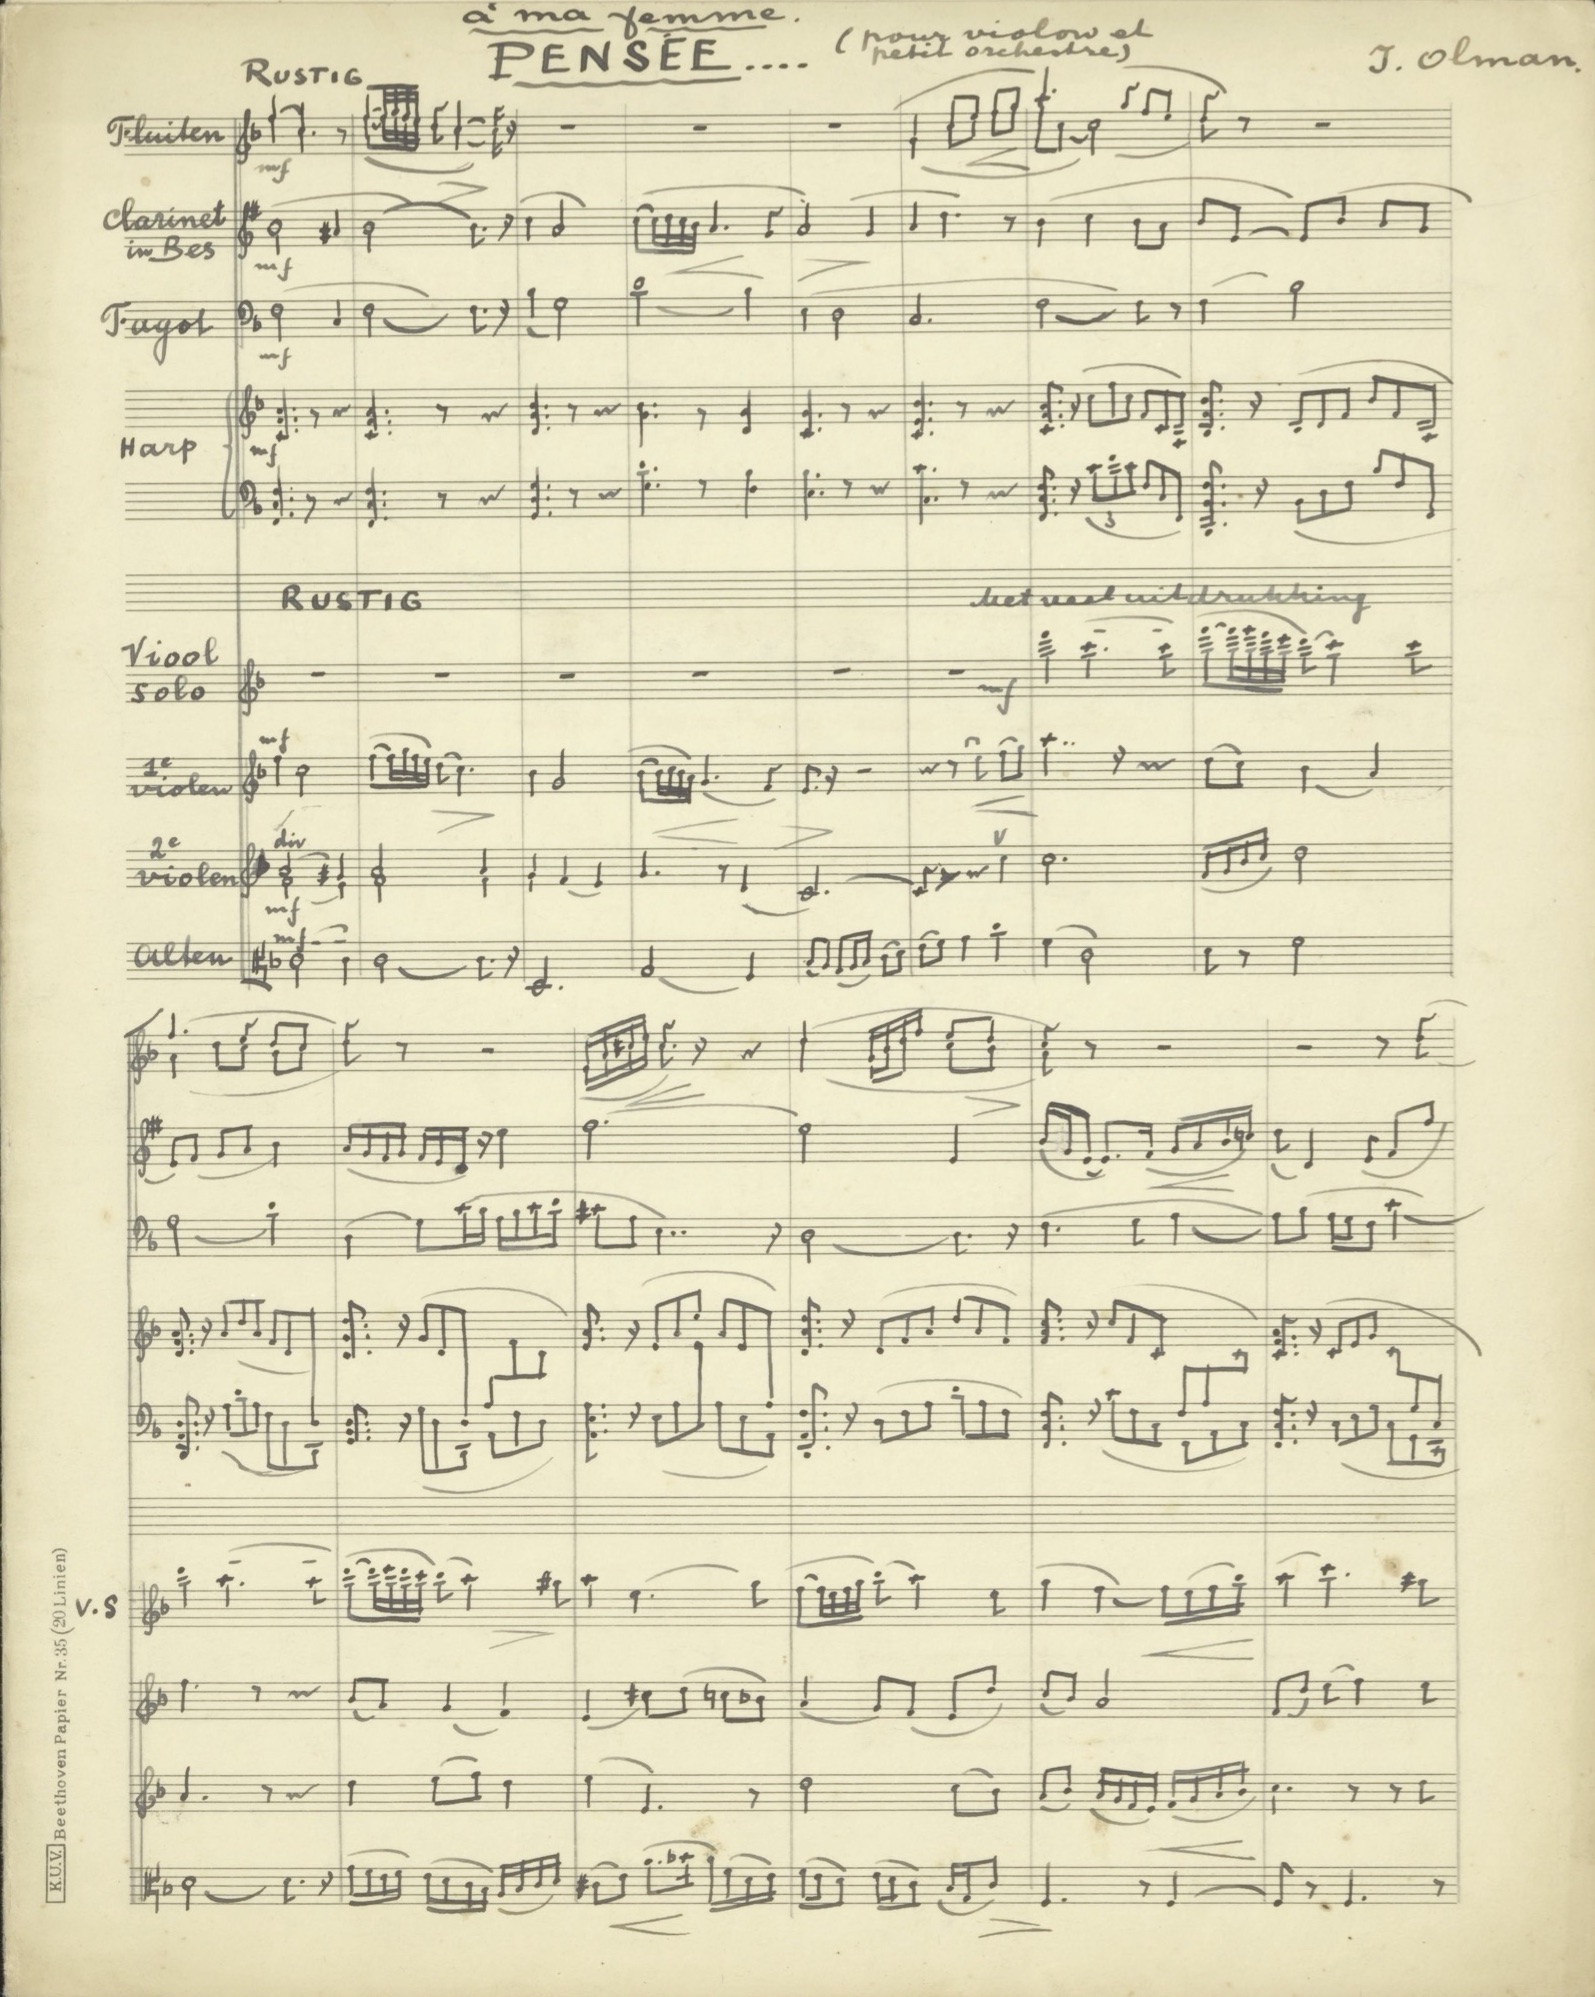 à ma femme.
PENSÉE....
(pour violon et
petit orchestre)
I. Olman.
RUSTIG
Fluiten
mf
Clarinet
in Bes
mf
Fagot
mf
Harp
mf
3
RUSTIG
Met veel uitdrukking
Viool
solo
mf
mf
1e
violen
div
2e
violen
mf
mf
Alten
V.S
K.U.V. Beethoven Papier Nr. 35 (20 Linien)